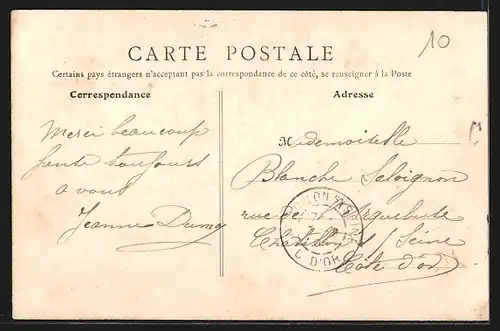 10
CARTE POSTALE
Certains pays étrangers n'acceptant pas la correspondance de ce côté, se renseigner à la Poste
Correspondance
Adresse
Merci beaucoup
toujours
a vous
Jeanne
Mademoiselle
Blanche
rue de l'Arquebuse
Châtillon s/ Seine
Côte d'or
C. D'OR